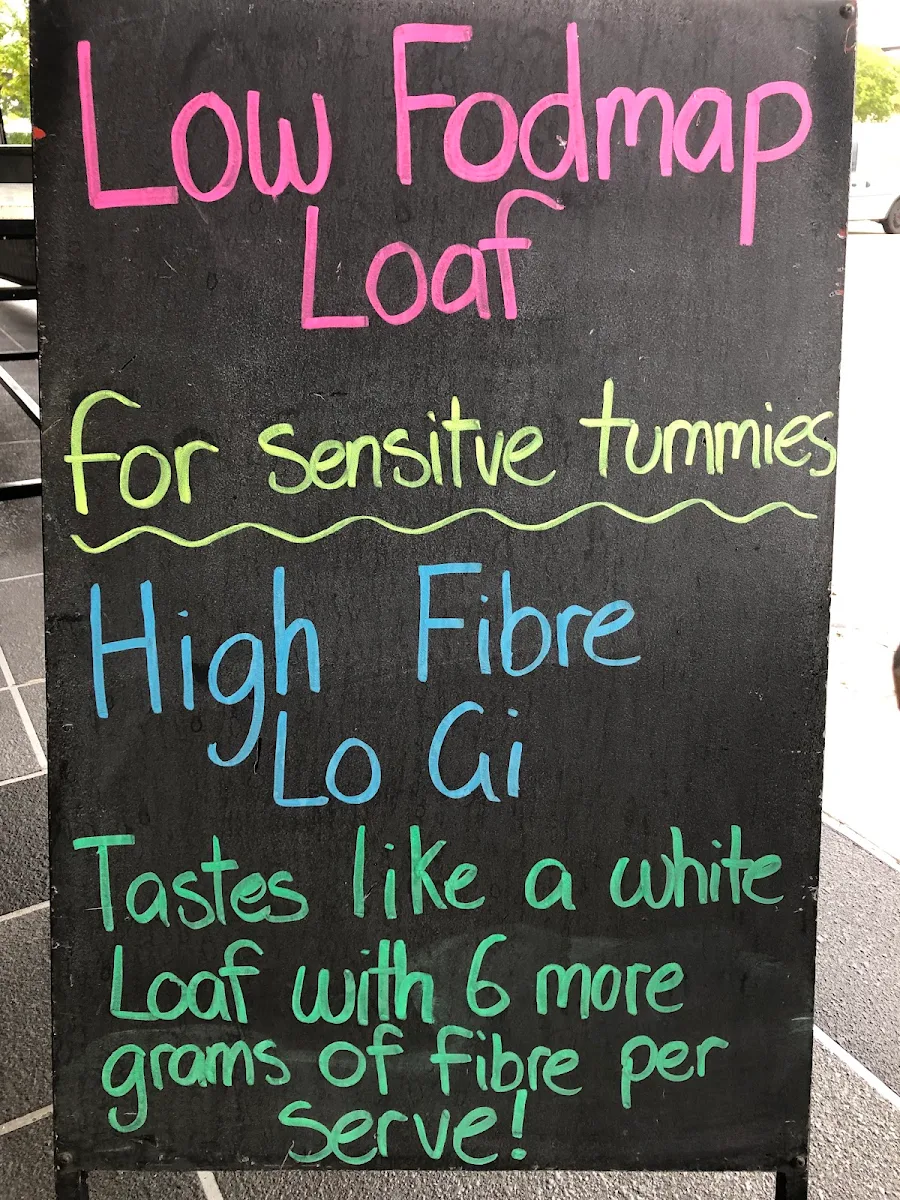 Low Fodmap
Loaf
for sensitve tummies
High Fibre
Lo Gi
Tastes like a white
Loaf with 6 more
grams of fibre per
serve!